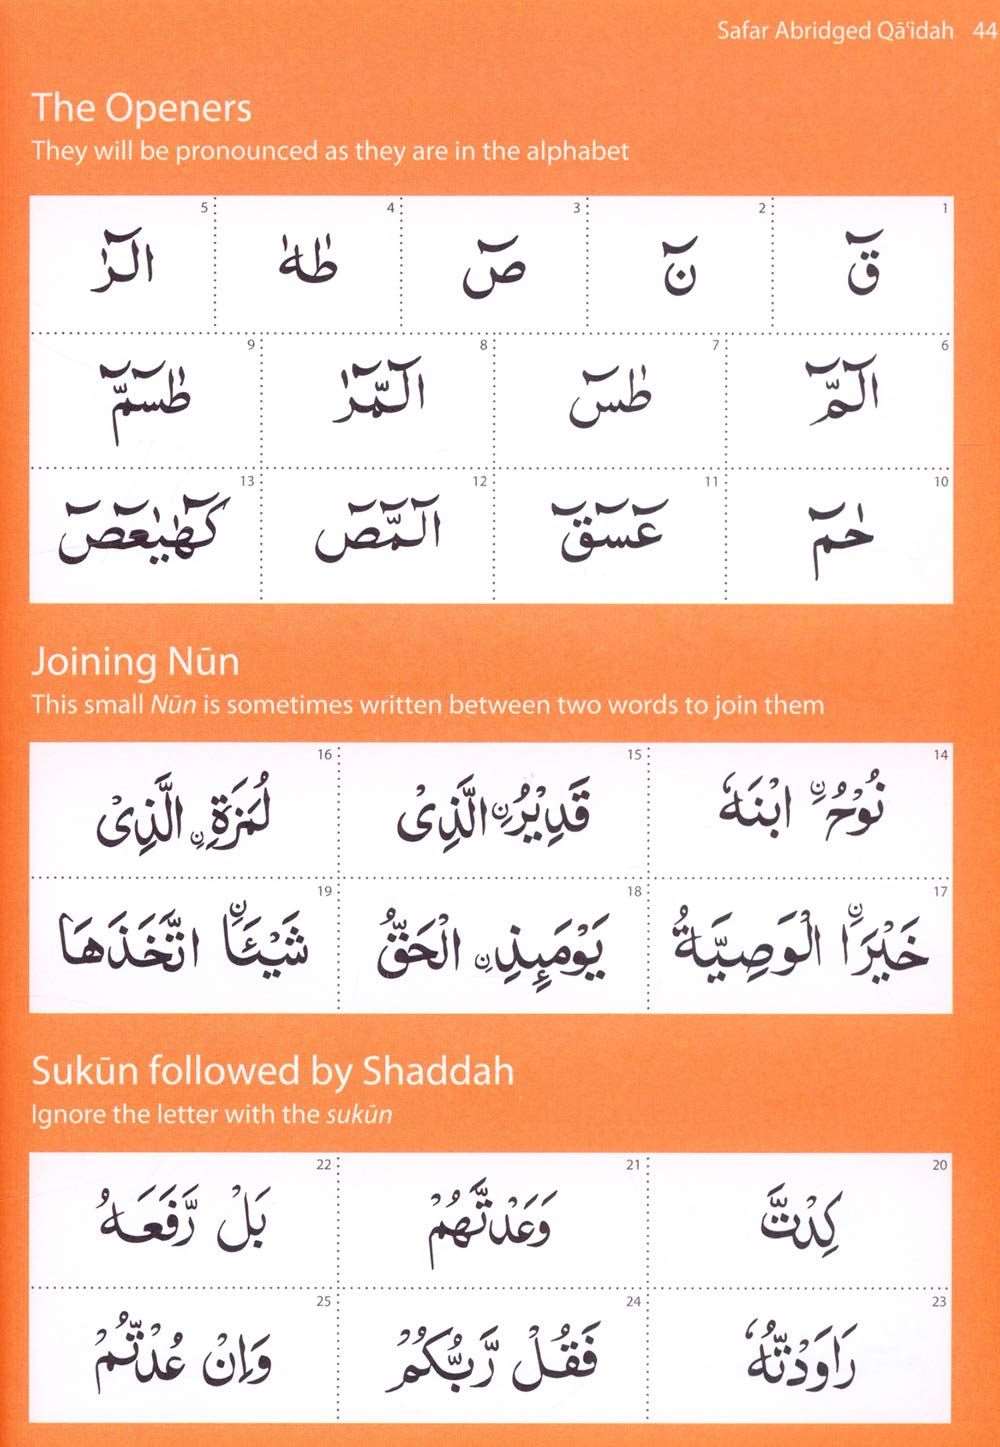 Safar Abridged Qā'idah 44
The Openers
They will be pronounced as they are in the alphabet
1 قٓ 2 نٓ 3 صٓ 4 طٰهٰ 5 الٓرٰ
6 الٓمّٓ 7 طٰسٓ 8 الٓمّٓرٰ 9 طٰسٓمّٓ
10 حٰمٓ 11 عٓسٓقٓ 12 الٓمّٓصٓ 13 كٓهٰيٰعٓصٓ
Joining Nūn
This small Nūn is sometimes written between two words to join them
14 نُوْحُ ۨ ابْنَهٗ 15 قَدِيْرُ ۨ الَّذِىْ 16 لُمَزَةِ ۨ الَّذِىْ
17 خَيْرَا ۨ الْوَصِيَّةُ 18 يَوْمَئِذِ ۨ الْحَقُّ 19 شَيْـَٔا ۨ اتَّخَذَهَا
Sukūn followed by Shaddah
Ignore the letter with the sukūn
20 كِدْتَّ 21 وَعَدْتَّهُمْ 22 بَلْ رَّفَعَهُ
23 رَاوَدْتُّهٗ 24 فَقُلْ رَّبُّكُمْ 25 وَاِنْ عُدْتُّمْ